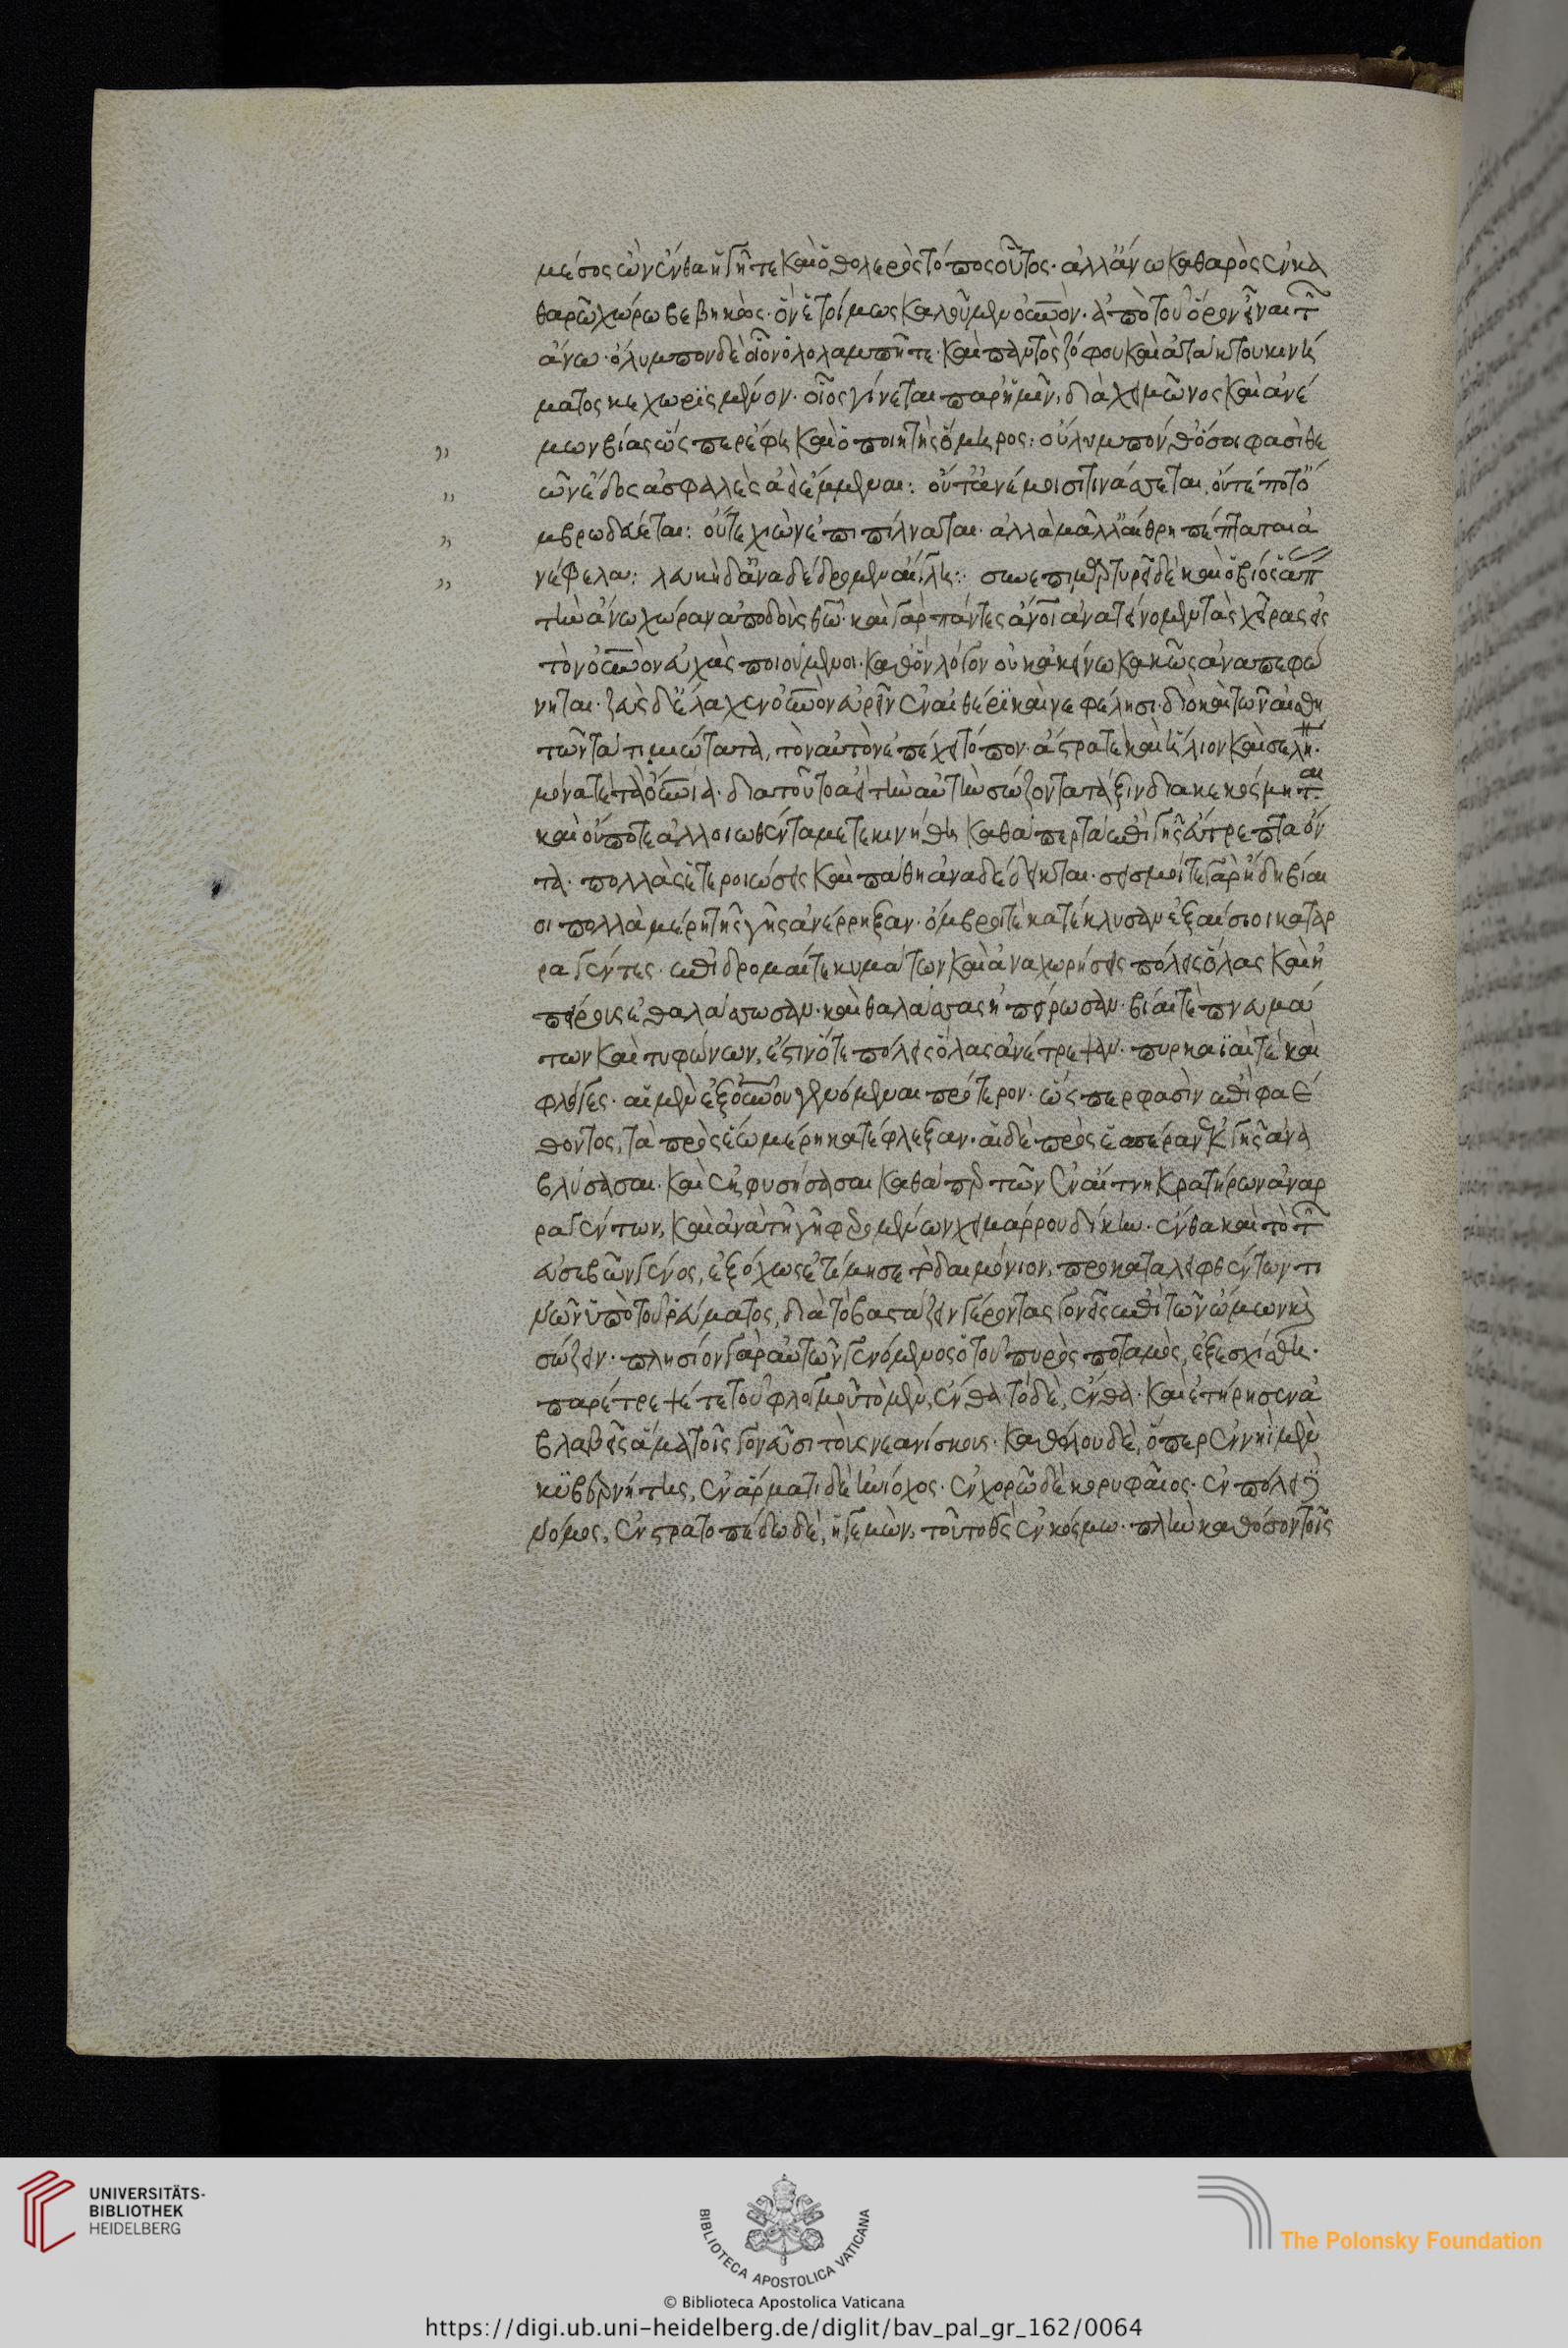 μέσος ὢν ἔνθα ἡ γῆ τε καὶ ὁ θολερὸς τόπος οὗτος· ἀλλ' ἄνω καθαρὸς ἐν κα
θαρῶ χώρω βεβηκὼς· ὃν ἐτοίμως καλοῦμεν οὐνον· ἀπὸ τοῦ ὅρον εἶναι τ
ἄνω· ὄλυμπον δὲ οἷον ὁλολαμπῆ τε· καὶ παντὸς ζόφου καὶ ἀτάκτου κινή
ματος κεχωρισμένον· οἷος γίνεται παρ' ἡμῖν, διὰ χειμῶνος καὶ ἀνέ
μων βίας ὥσπερ ἔφη καὶ ὁ ποιητὴς ὅμηρος: οὔλυμπον δ' ὅσοι φασὶ θε
ῶν ἕδος ἀσφαλὲς ἀεὶ ἔμμεναι: οὔτ' ἀνέμοισι τινάσσεται, οὔτέ ποτ' ὄ
μβρω δεύεται: οὔτε χιὼν ἐπιπίλναται· ἀλλὰ μᾶλλ' αἴθρη πέπταται ἀ
νέφελα: λευκὴ δ' ἀναδέδρομεν αἴγλη: συνεπιμαρτυρεῖ δὲ καὶ ὁ βίος ἅπ
τὴν ἄνω χώραν ἀποδοὺς θῶ· καὶ γὰρ πάντες ἄνοι ἀνατείνομεν τὰς χεῖρας εἰς
τὸν οὐνον εὐχὰς ποιούμενοι· καθ' ὃν λόγον οὐ κἀκείνω κακῶς ἀναπεφώ
νηται· ζεὺς δ' ἔλαχεν οὐνον εὐρὺν ἐν αἰθέρι καὶ νεφέλησι· διὸ καὶ τῶν αἰσθη
τῶν τὰ τιμιώτατα, τὸν αὐτὸν ἐπέχει τόπον· ἄστρα τὲ καὶ ἥλιον καὶ σελή·
μόνα τὲ τὰ οὐνία· διὰ τοῦτο ἀεὶ τὴν αὐτὴν σώζοντα τάξιν διακεκόσμηται
καὶ οὔποτε ἀλλοιωθέντα μετεκινήθη καθάπερ τὰ ἐπὶ γῆς εὔτρεπτα ὄν
τα· πολλὰς ἑτεροιώσεις καὶ πάθη ἀναδέδεικται· σεισμοί τε γὰρ ἤδη βίαι
οι πολλὰ μέρη τῆς γῆς ἀνέρρηξαν· ὄμβροι τὲ κατέκλυσαν ἐξαίσιοι καταρ
ραγέντες· ἐπιδρομαί τε κυμάτων καὶ ἀναχωρήσεις πόλεις ὅλας καὶ ἠ
πείρους ἐθαλάττωσαν· καὶ θαλάττας ἠπείρωσαν· βίαι τὲ πνευμά
των καὶ τυφώνων, ἔστιν ὅτε πόλεις ὅλας ἀνέτρεψαν· πυρκαϊαί τὲ καὶ
φλόγες· αἱ μὲν ἐξ οὐνου γενόμεναι πρότερον· ὥσπερ φασὶν ἐπὶ φαέ
θοντος, τὰ πρὸς ἕω μέρη κατέφλεξαν· αἱ δὲ πρὸς ἑσπέραν ἐκ γῆς ἀνα
βλύσασαι· καὶ ἐκφυσήσασαι καθάπερ τῶν ἐν αἴτνη κρατήρων ἀναρ
ραγέντων, καὶ ἀνὰ τὴν γῆν φερομένων χειμάρρου δίκην· ἔνθα καὶ τὸ τ
εὐσεβῶν γένος, ἐξόχως ἐτίμησε τὸ δαιμόνιον, προκαταλειφθέντων τι
μῶν ὑπὸ τοῦ ῥεύματος, διὰ τὸ βαστάζειν γέροντας γονεῖς ἐπὶ τῶν ὤμων καὶ
σώζειν· πλησίον γὰρ αὐτῶν γενόμενος ὁ τοῦ πυρὸς ποταμὸς, ἐξεσχίσθη·
παρέτρεψέ τε τοῦ φλογμοῦ τὸ μὲν, ἔνθα τό δὲ, ἔνθα· καὶ ἐτήρησεν ἀ
βλαβεῖς ἅμα τοῖς γονεῦσι τοὺς νεανίσκους· καθόλου δὲ, ὅπερ ἐν νηῒ μὲν
κυβερνήτης, ἐν ἅρματι δὲ ἡνίοχος· ἐν χορῶ δὲ κορυφαῖος· ἐν πόλει δὲ
νόμος, ἐν στρατοπέδω δὲ, ἡγεμὼν, τοῦτο θς ἐν κόσμω· πλὴν καθόσον τοῖς
UNIVERSITÄTS-
BIBLIOTHEK
HEIDELBERG
BIBLIOTECA APOSTOLICA VATICANA
The Polonsky Foundation
© Biblioteca Apostolica Vaticana
https://digi.ub.uni-heidelberg.de/diglit/bav_pal_gr_162/0064